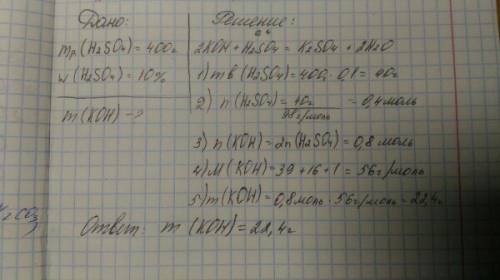 Дано:
mр(H₂SO₄)=400г
w(H₂SO₄)=10%
m(KOH)-?
Решение:
0,4
2KOH+H₂SO₄=K₂SO₄+2H₂O
1) mв(H₂SO₄)=400·0,1=40г
2) n(H₂SO₄)=40г/98г/моль=0,4моль
3) n(KOH)=2n(H₂SO₄)=0,8моль
4) M(KOH)=39+16+1=56г/моль
5) m(KOH)=0,8моль·56г/моль=22,4г
Ответ: m(KOH)=22,4г